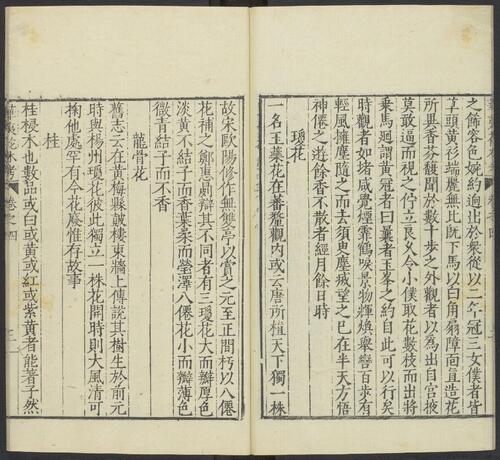 之飾容色婉約迥出於衆從以二女冠三女僕者皆
丱頭黃衫端麗無比既下馬以白角扇障面直造花
所異香芬馥聞於數十步之外觀者以爲出自宮掖
莫敢逼而視之佇立良久令小僕取花數枝而出將
乘馬廻謂黃冠者曰曩者玉峯之約自此可以行矣
時觀者如堵咸覺煙霏鶴唳景物輝煥舉轡百步有
輕風擁塵隨之而去須臾塵滅望之已在半天方悟
神僊之遊餘香不散者經月餘日時
瓊花
一名玉蘂花在蕃釐觀内或云唐所植天下獨一株
故宋歐陽修作無雙亭以賞之元至正間朽以八僊
花補之鄭惠廟辯其不同者有三瓊花大而瓣厚色
淡黃不結子而香葉柔而瑩澤八僊花小而瓣薄色
微青結子而不香
龍骨花
舊志云在黃梅縣譙樓東牆上傳談其樹生於前元
時與楊州瓊花彼此獨立一株花開時則大風清可
掬他處罕有今花廢惟存故事
桂
桂梫木也數品或白或黃或紅或紫黃者能著子然
卷之四